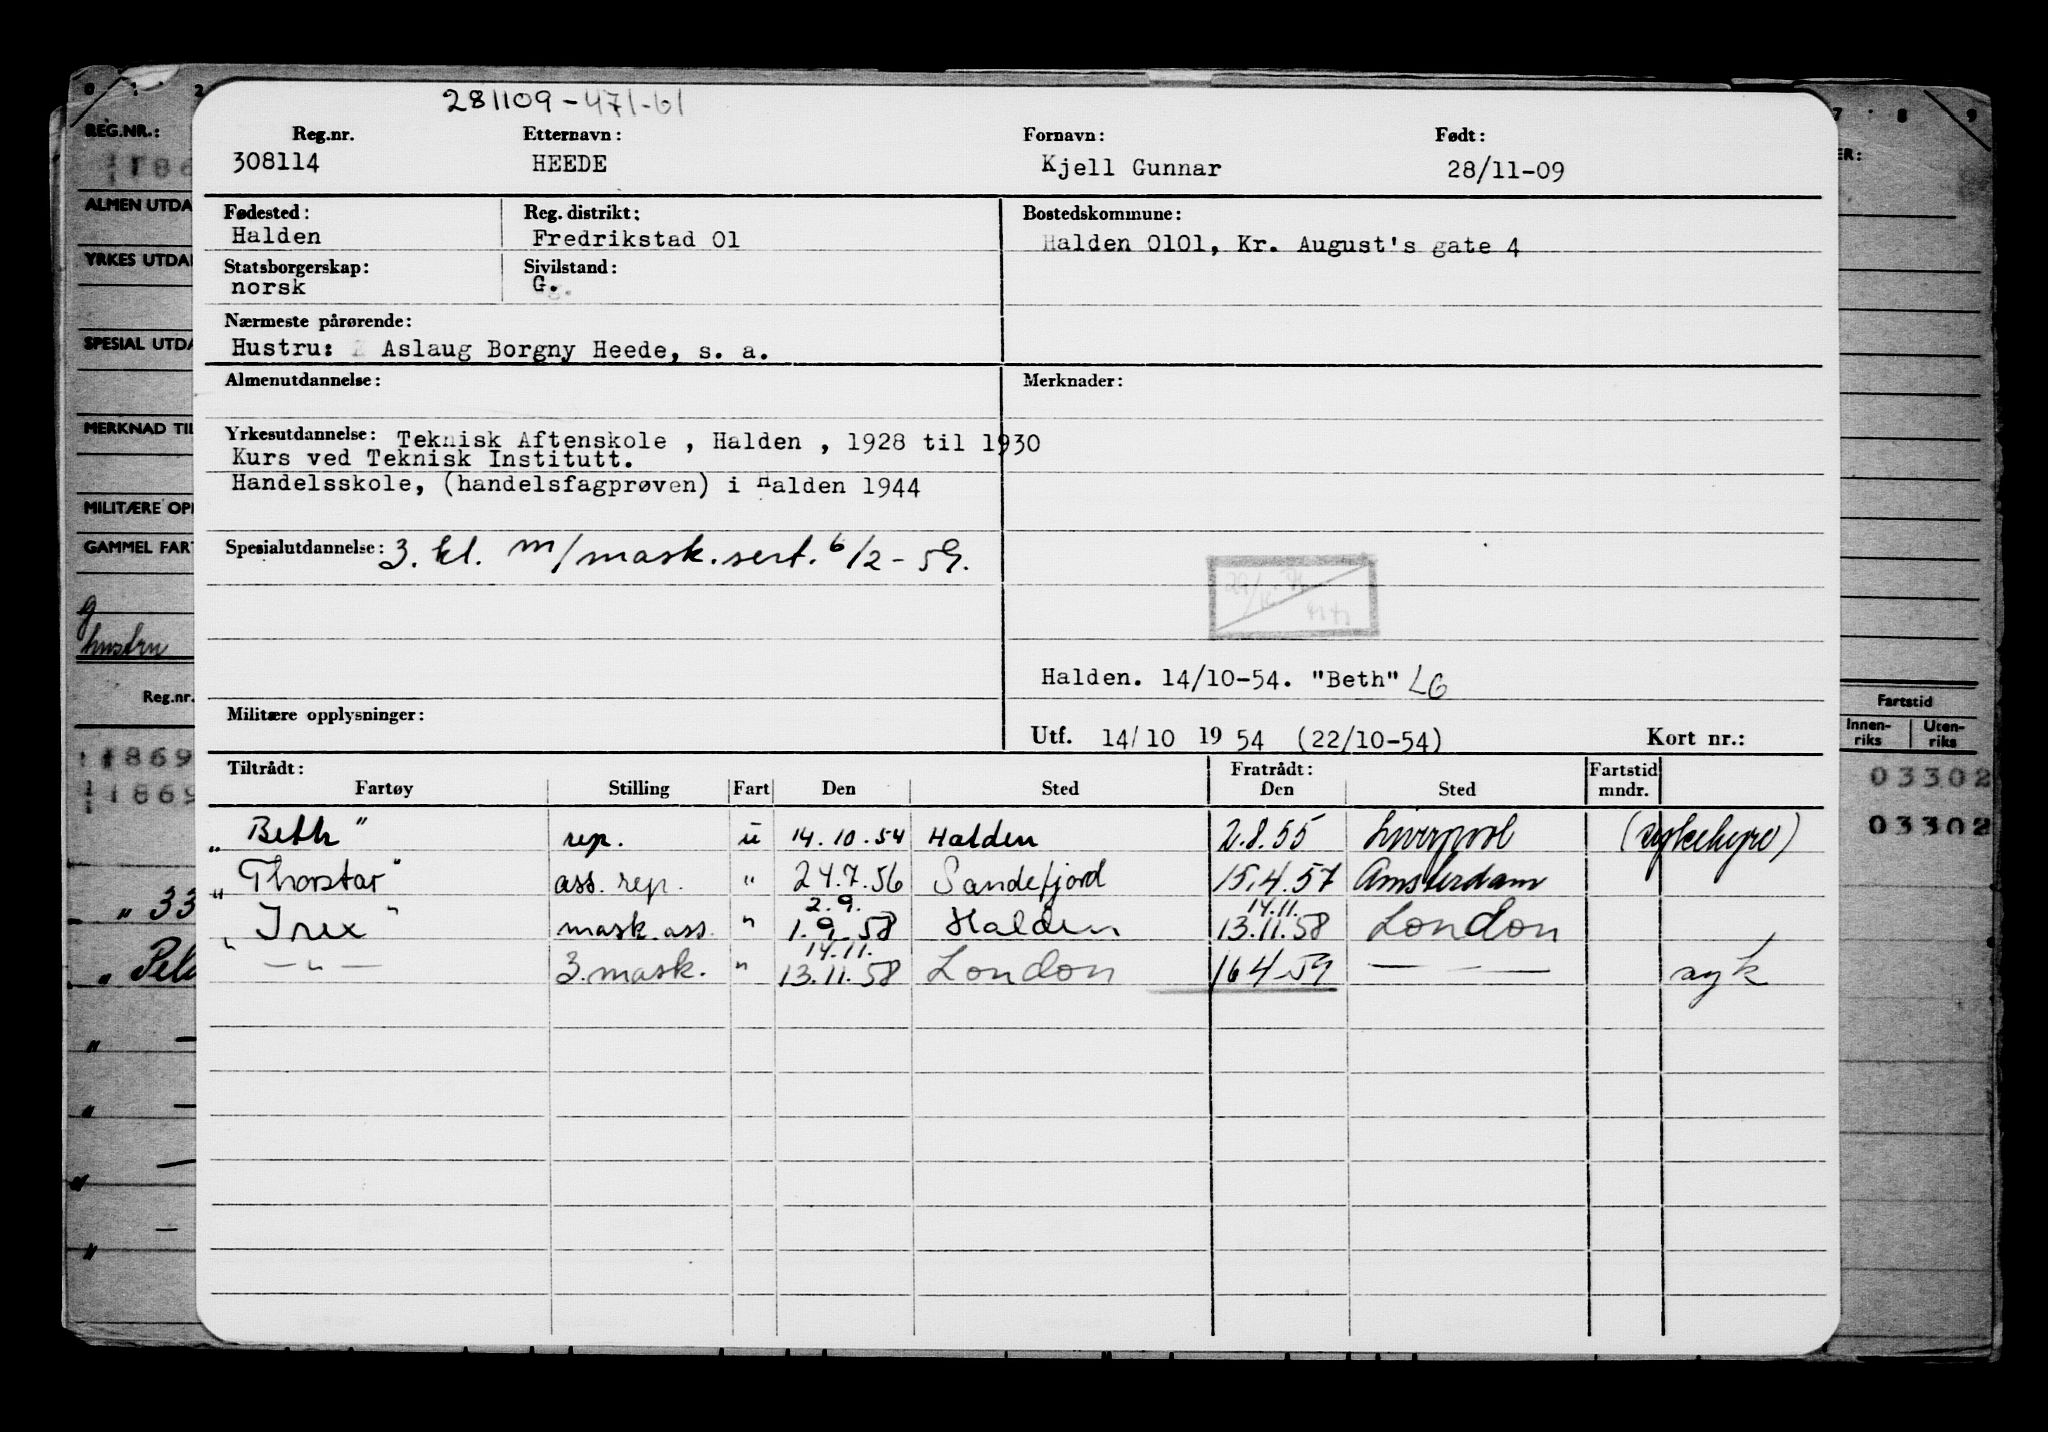 281109-471-61
Reg.nr. Etternavn: Fornavn: Født:
308114 HEEDE Kjell Gunnar 28/11-09
Fødested: Reg. distrikt: Bostedskommune:
Halden Fredrikstad 01 Halden 0101, Kr. August's gate 4
Statsborgerskap: Sivilstand:
norsk G.
Nærmeste pårørende:
Hustru: Aslaug Borgny Heede, s. a.
Almenutdannelse: Merknader:
Yrkesutdannelse: Teknisk Aftenskole , Halden , 1928 til 1930
Kurs ved Teknisk Institutt.
Handelsskole, (handelsfagprøven) i Halden 1944
Spesialutdannelse: 3. kl. m/mask.sert. 6/2-59.
Halden. 14/10-54. "Beth" LG
Militære opplysninger:
Utf. 14/10 1954 (22/10-54) Kort nr.:
Tiltrådt: Fratrådt: Fartstid
Fartøy Stilling Fart Den Sted Den Sted mndr.
"Beth" rep. u 14.10.54 Halden 2.8.55 Liverpool (sykehyre)
"Thorstar" ass. rep. " 24.7.56 Sandefjord 15.4.57 Amsterdam
2.9. 14.11.
"Irex" mask.ass. " 1.9.58 Halden 13.11.58 London
14.11.
—"— 3.mask. " 13.11.58 London 16 4 59 — — — syk
0 2
REG.NR.:
ALMEN UTDA
YRKES UTDA
SPESIAL UTDA
MERKNAD TIL
MILITÆRE OPP
GAMMEL FART
g
hustru
Reg.nr.
1869
1869
" 33
" Pel
"
"
"
"
7 8 9
ER:
Fartstid
Innen-riks Uten-riks
03302
03302